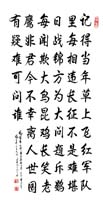 记得当年草上飞红军队
里每相违长征不是难堪
日战锦方为大问题斥鷃
每闻欺大鸟昆鸡长笑老
鹰非君今不幸离人世国
有疑难可问谁